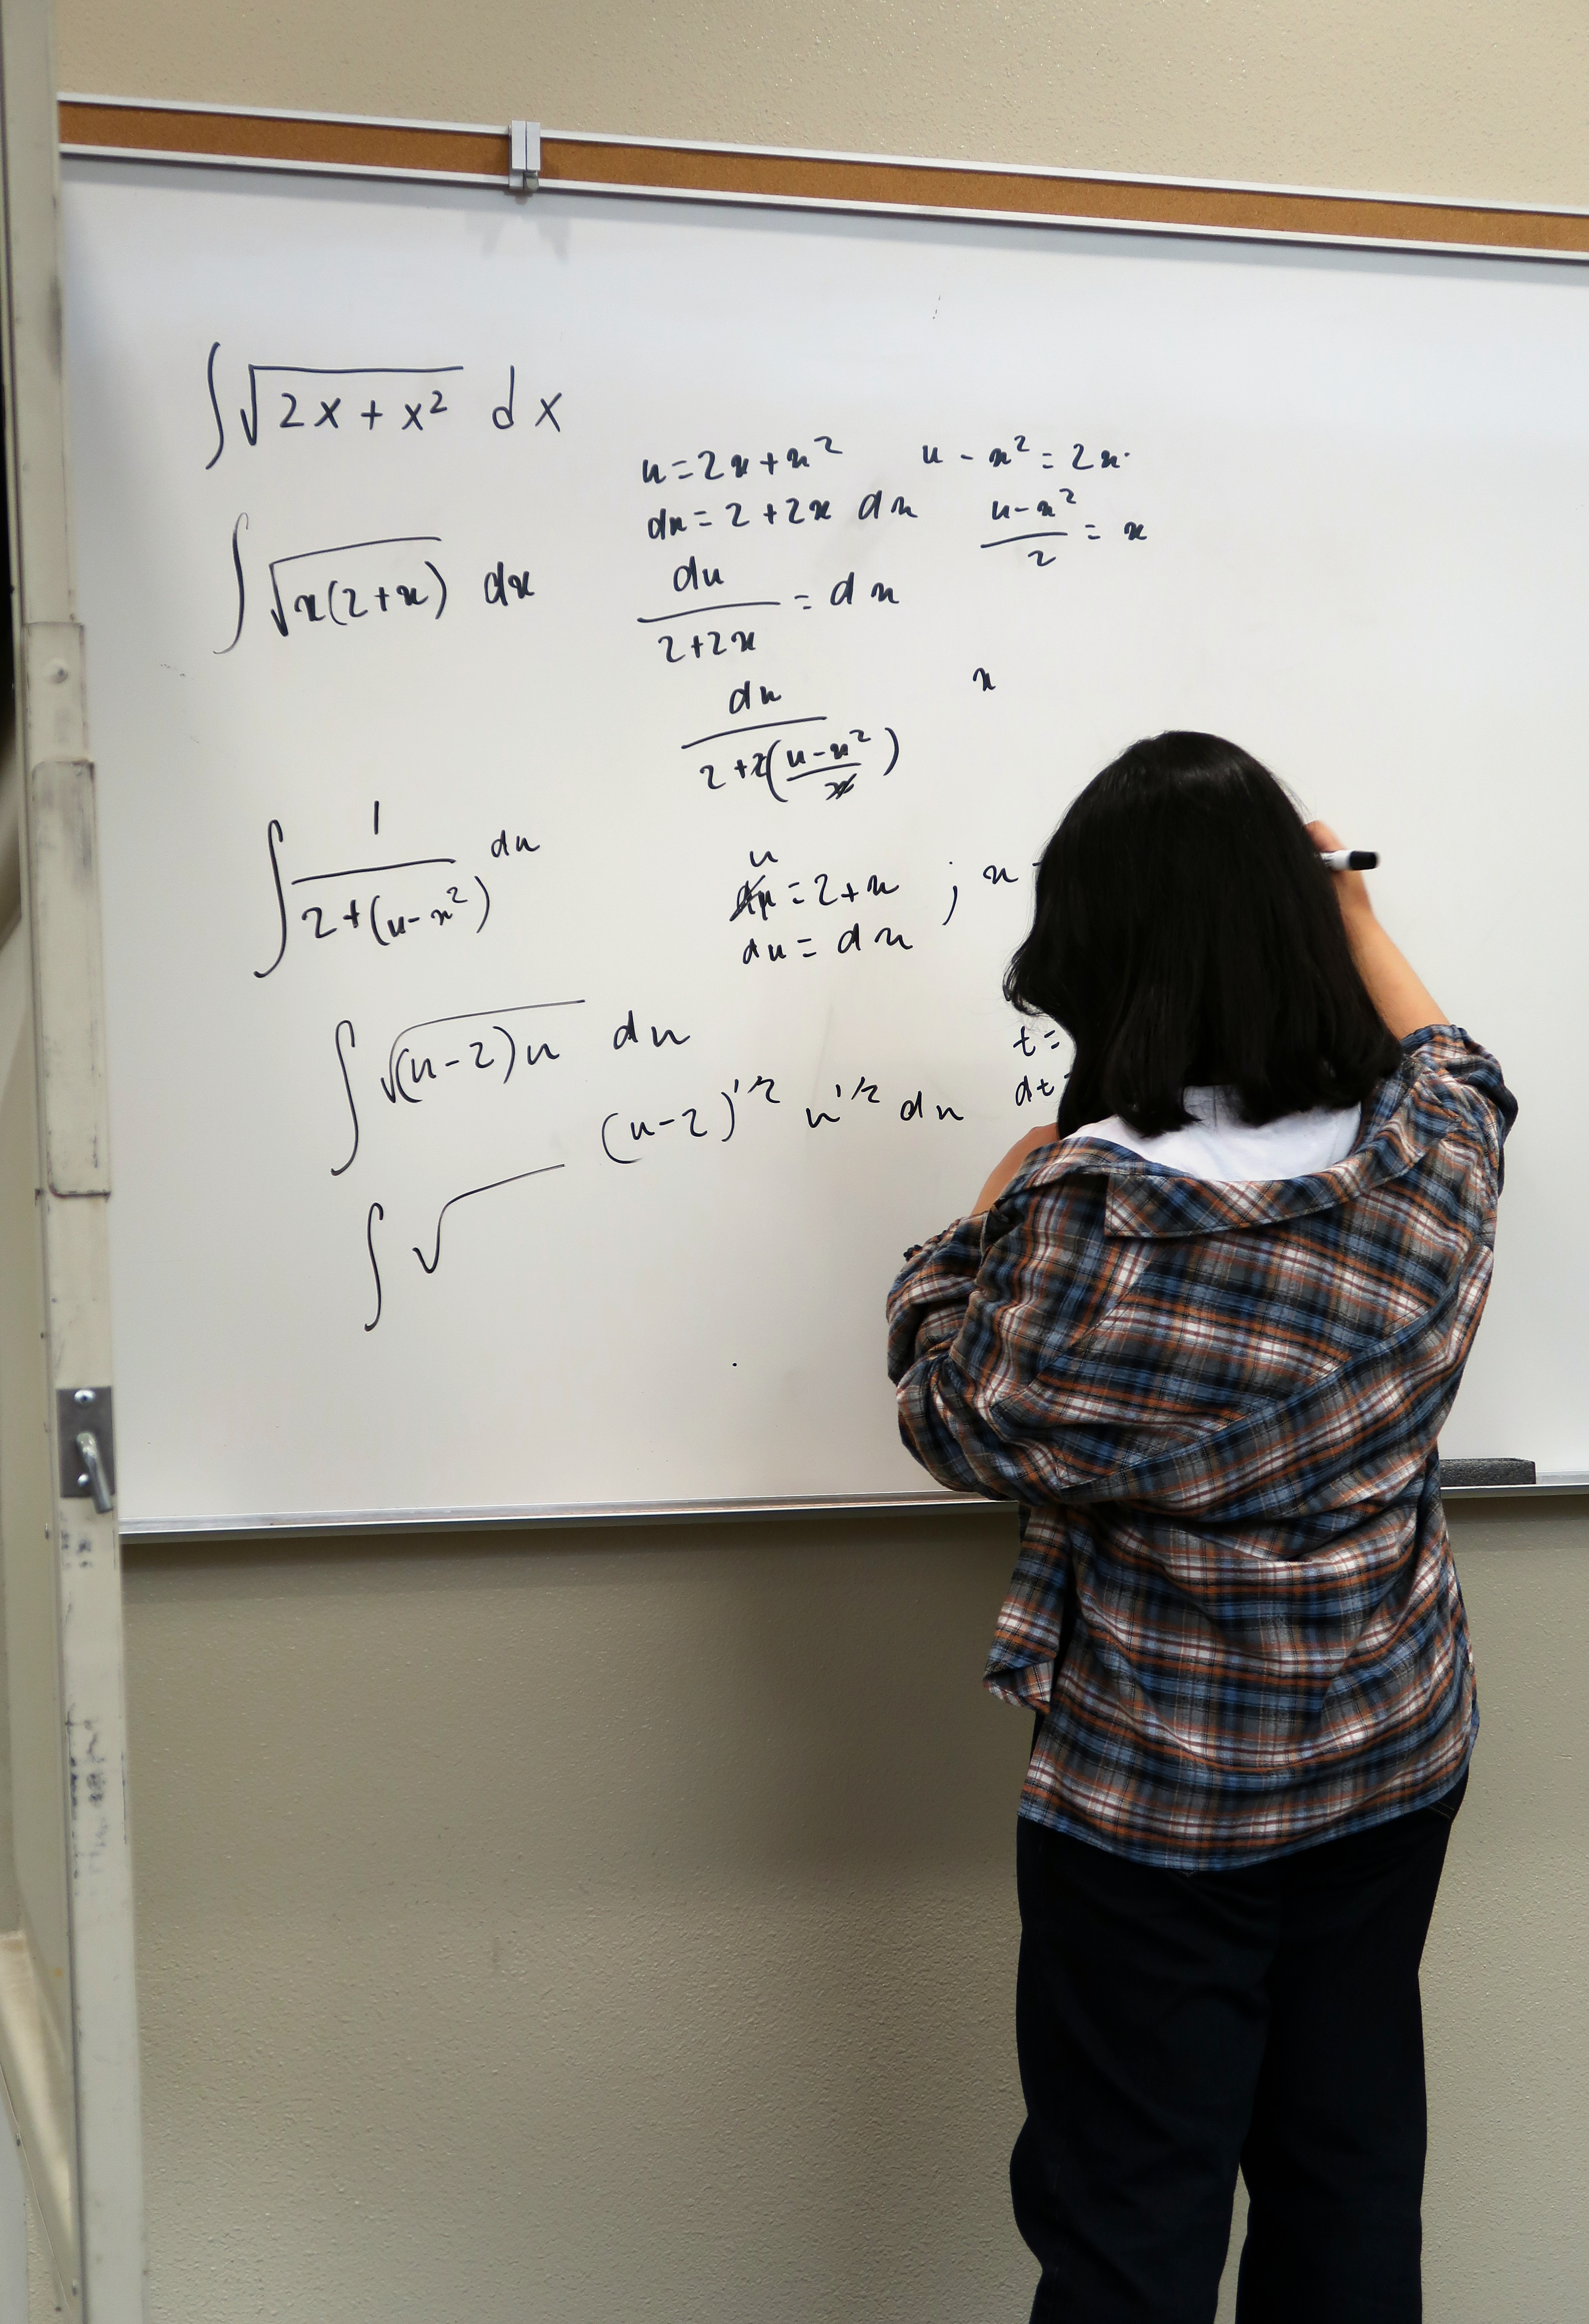 ∫√(2x + x²) dx
u = 2x + x² u - x² = 2x
du = 2 + 2x dx (u - x²)/2 = x
∫√(x(2+x)) dx
du/(2+2x) = dx
x
du/(2+2((u-x²)/2))
∫ 1/(2+(u-x²)) du
u
du = 2+x ; x
du = dx
∫√((u-2)u) du
t =
dt
(u-2)^1/2 u^1/2 du
∫√